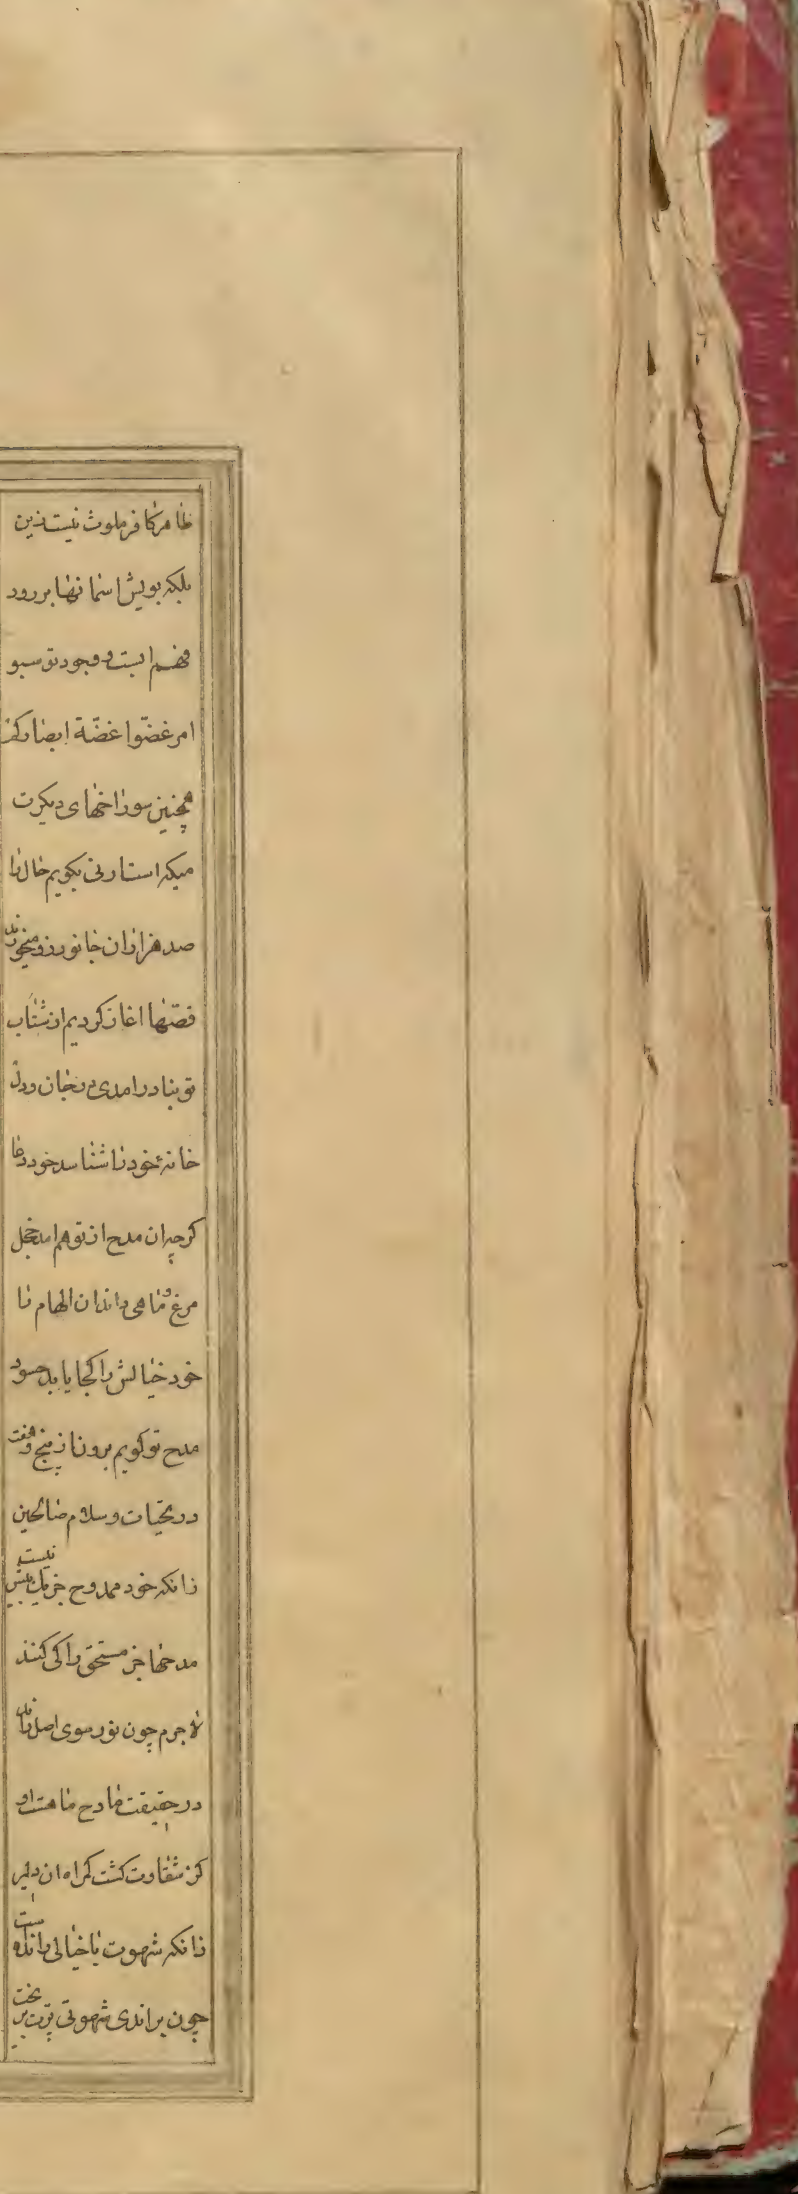 ظاهر کافر ملوث نیست زین
بلکه بویش اسمانها بر رود
فهم ابست و وجود تو سبو
امر غضوا غضّة ابصارکم
همچنین سوراخهای دیکرت
میکه استاونی بکویم حال را
صد هزاران جانور زو میخورند
قصّها اغاز کردیم از شتاب
تو بنادر امدی در جان و دل
خانهٔ خود را شناسد خود دعا
کرچه ان مدح از تو هم امد خجل
مرغ و ماهی داند ان الهام را
خود خیالش را کجا یابد حسود
مدح تو کویم برون از پنج و هفت
در تحیات و سلام صالحین
زانکه خود ممدوح جز یک بیش نیست
مدحها جز مستحق را کی کنند
لاجرم چون نور سوی اصل راند
در حقیقت مادح ماهست او
کز شقاوت کشت کمراه ان دلیر
زانکه شهوت با خیالی رانده است
چون براندی شهوتی پرّت بریخت